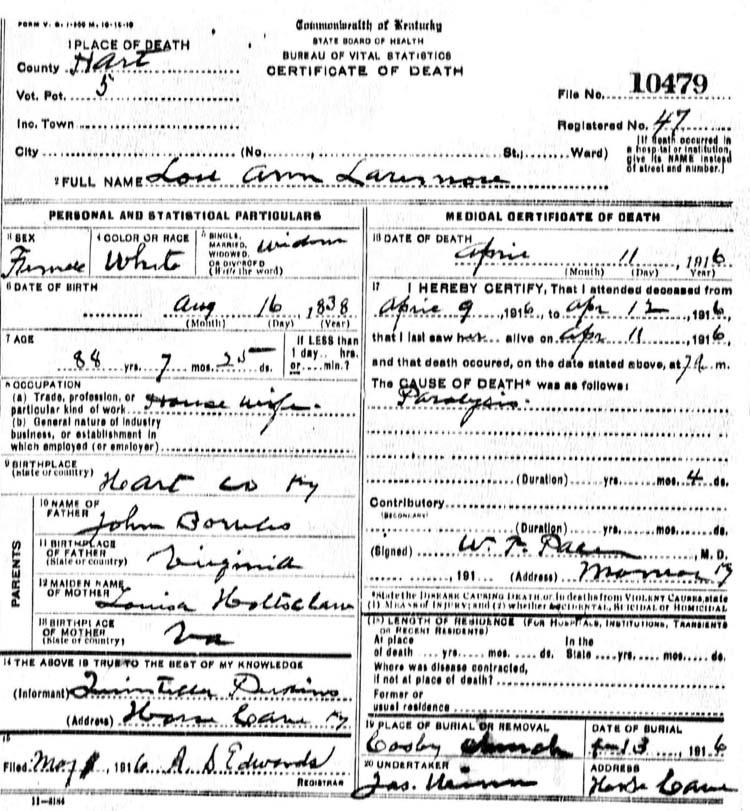 FORM V. S. 1-500 M. 10-16-10
Commonwealth of Kentucky
STATE BOARD OF HEALTH
BUREAU OF VITAL STATISTICS
CERTIFICATE OF DEATH
1 PLACE OF DEATH
County Hart
Vot. Pct. 5
Inc. Town
City (No. St.; Ward)
File No. 10479
Registered No. 47
[If death occurred in a hospital or institution, give its NAME instead of street and number.]
2 FULL NAME Lou Ann Larimore
PERSONAL AND STATISTICAL PARTICULARS
3 SEX
Female
4 COLOR OR RACE
White
5 SINGLE, MARRIED, WIDOWED, OR DIVORCED (Write the word)
Widow
6 DATE OF BIRTH
Aug 16 1838
(Month) (Day) (Year)
7 AGE
88 yrs. 7 mos. 25 ds.
If LESS than 1 day.. hrs. or.... min.?
8 OCCUPATION
(a) Trade, profession, or particular kind of work House wife
(b) General nature of industry business, or establishment in which employed (or employer)
9 BIRTHPLACE
(State or country)
Heart co Ky
PARENTS
10 NAME OF FATHER
John
11 BIRTHPLACE OF FATHER
(State or country)
Virginia
12 MAIDEN NAME OF MOTHER
Louisa
13 BIRTHPLACE OF MOTHER
(State or country)
Va
14 THE ABOVE IS TRUE TO THE BEST OF MY KNOWLEDGE
(Informant) Perkins
(Address) Horse Cave Ky
15
Filed May 1 1916 A S Edwards
REGISTRAR
11-3184
MEDICAL CERTIFICATE OF DEATH
16 DATE OF DEATH
April 11, 1916
(Month) (Day) Year)
17 I HEREBY CERTIFY, That I attended deceased from
April 9, 1916, to Apr 12, 1916,
that I last saw her alive on Apr 11, 1916,
and that death occured, on the date stated above, at 7 m.
The CAUSE OF DEATH* was as follows:
Paralysis
(Duration) yrs. mos. 4 ds.
Contributory
(SECONDARY)
(Duration) yrs. mos. ds.
(Signed) W. F. M. D.
191 (Address) Ky
*State the DISEASE CAUSING DEATH, or in deaths from VIOLENT CAUSES, state (1) MEANS OF INJURY; and (2) whether ACCIDENTAL, SUICIDAL or HOMICIDAL
18 LENGTH OF RESIDENCE (FOR HOSPITALS, INSTITUTIONS, TRANSIENTS OR RECENT RESIDENTS)
At place of death yrs. mos. ds. In the State yrs. mos. ds.
Where was disease contracted, if not at place of death?
Former or usual residence
19 PLACE OF BURIAL OR REMOVAL
Cosby Church
DATE OF BURIAL
13, 1916
20 UNDERTAKER
Jas.
ADDRESS
Horse Cave